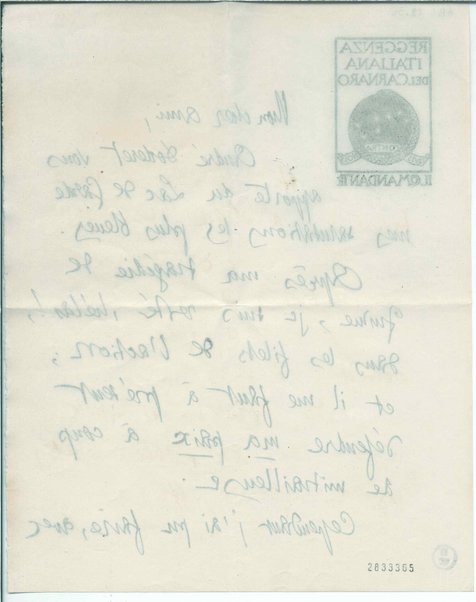 REGGENZA
ITALIANA
DEL CARNARO
IL COMANDANTE
Mon cher ami,
André Doderet vous
apporte du Lac de Garde
mes salutations les plus bleues.
Après ma tragédie de
Fiume, je suis resté, hélas!,
dans les filets de l'action;
et il me faut à présent
défendre ma paix à coup
de mitrailleuse.
Cependant j'ai pu faire, avec
2833365